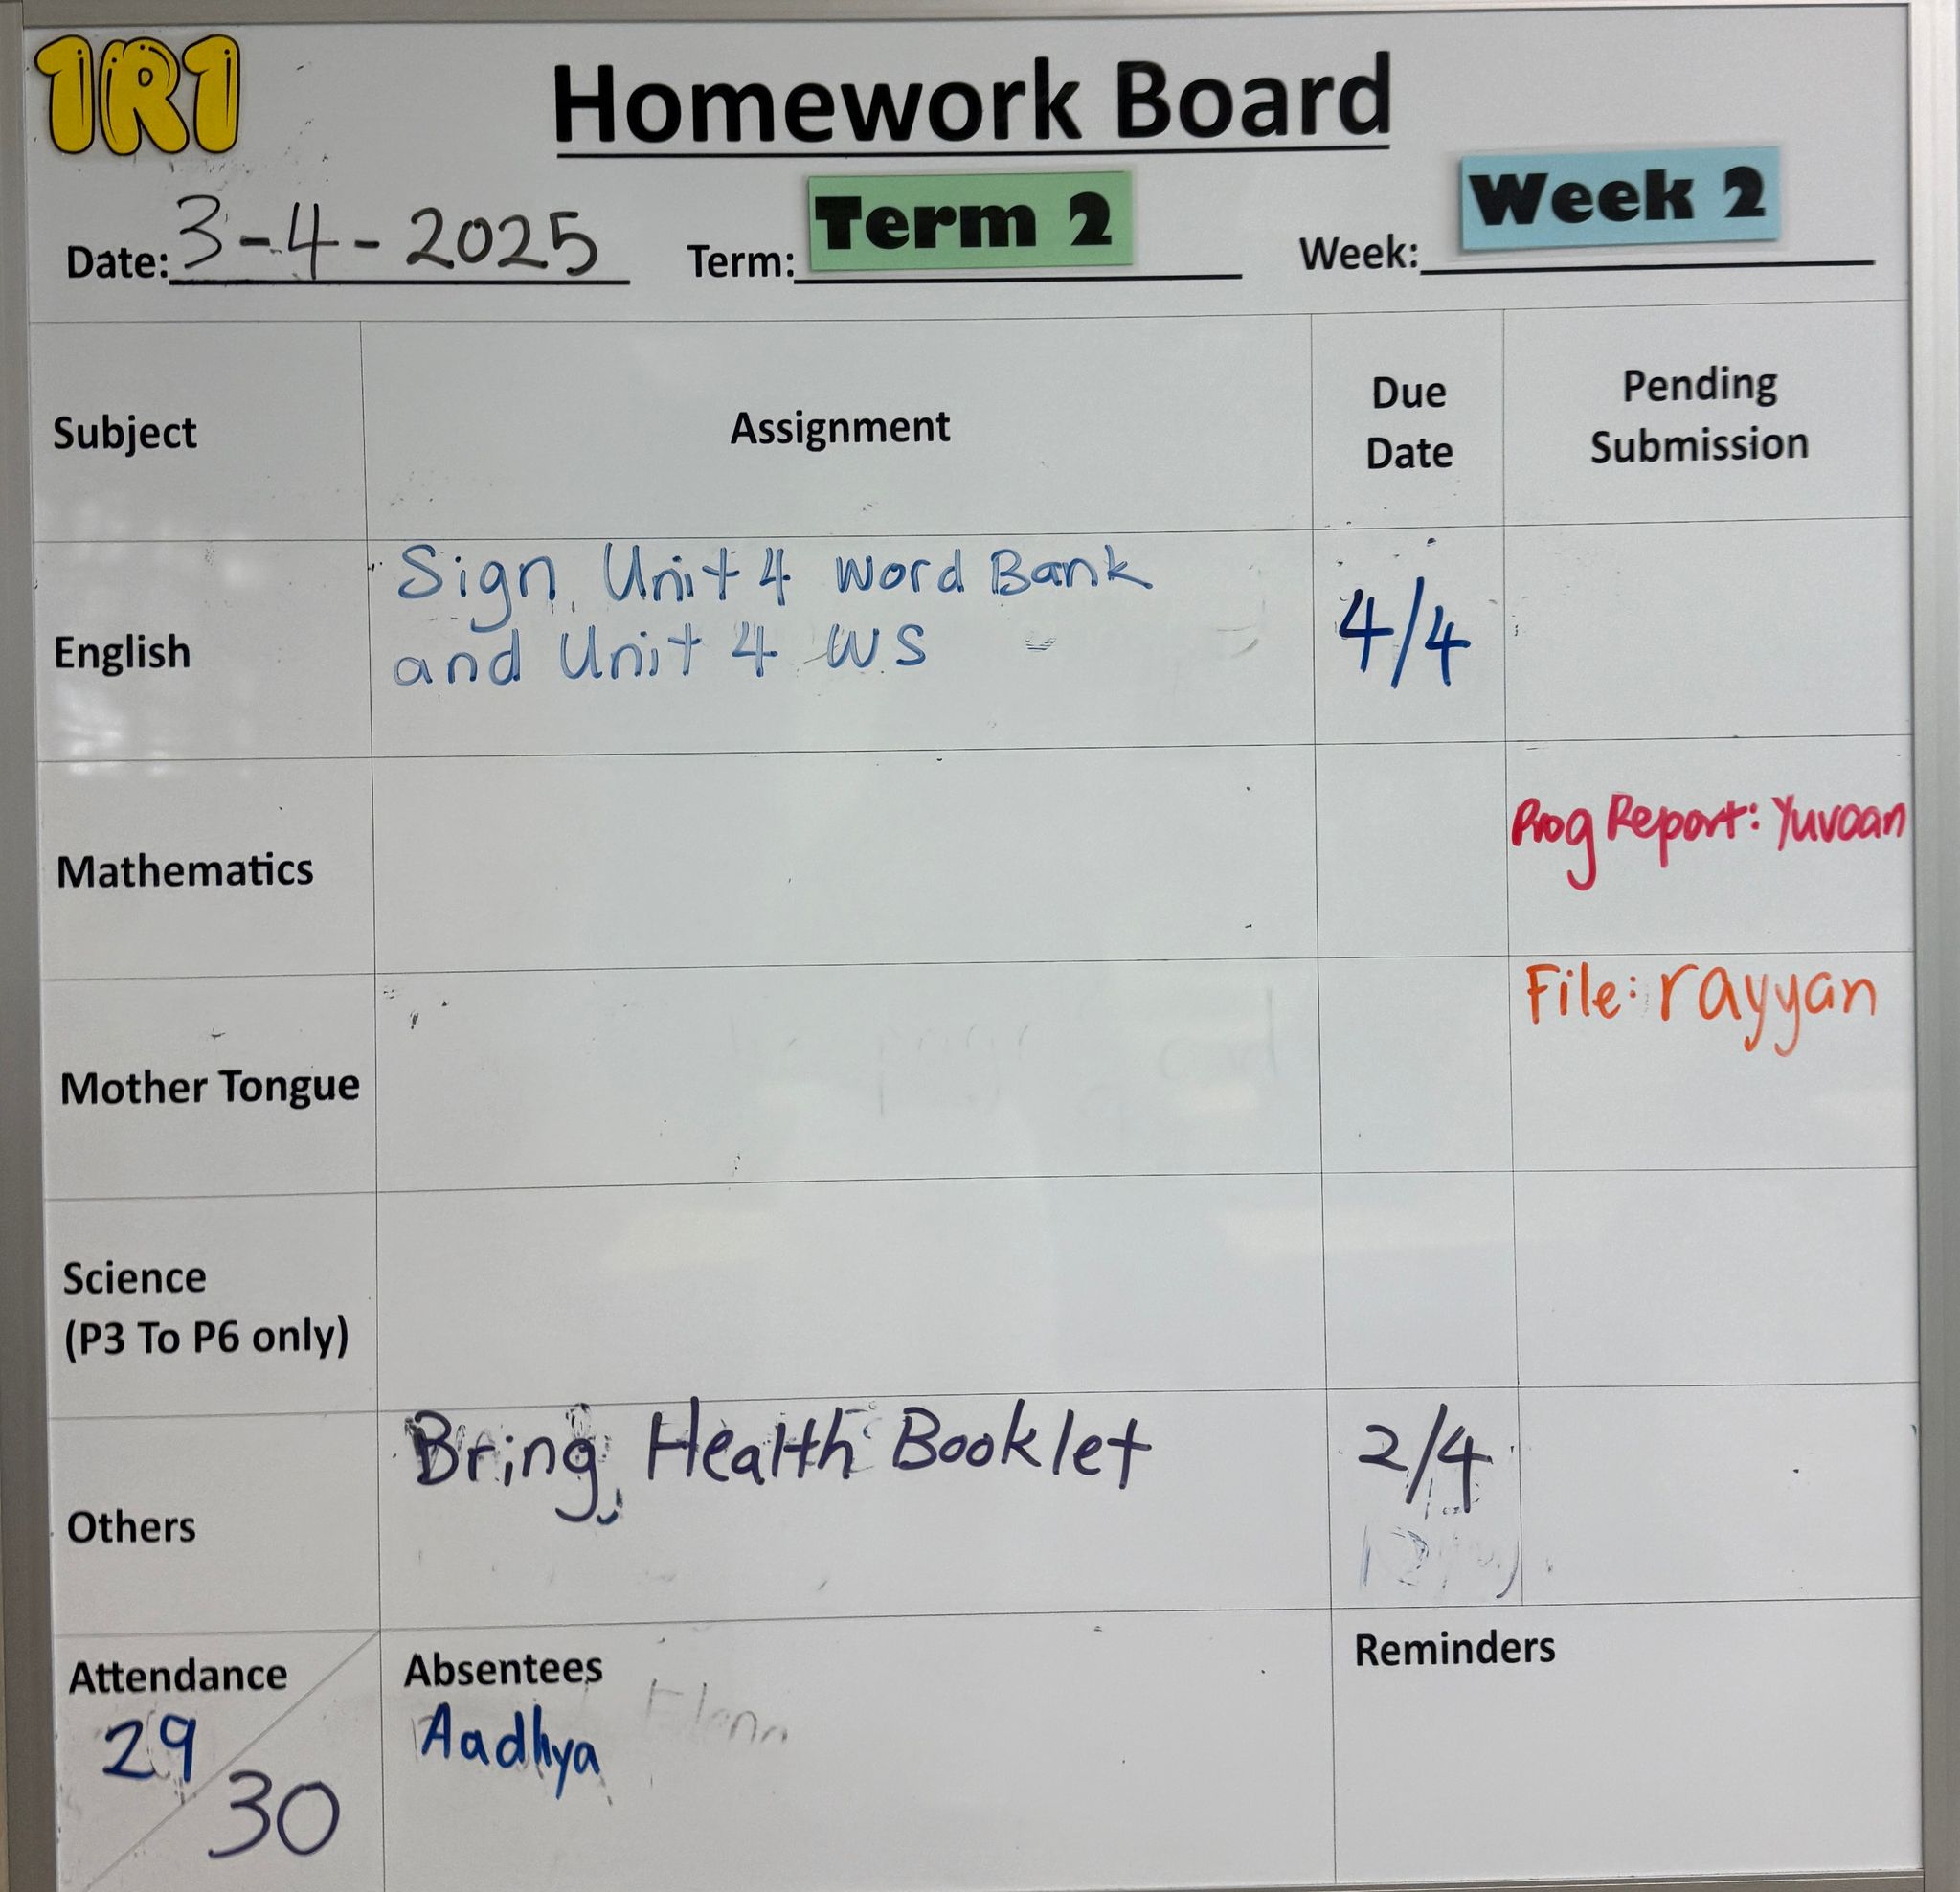 1R1
Homework Board
Date: 3-4-2025 Term: Term 2 Week: Week 2
Subject Assignment Due Date Pending Submission
English Sign Unit 4 Word Bank 4/4
and Unit 4 WS
Mathematics Prog Report: Yuvaan
Mother Tongue File: rayyan
Science
(P3 To P6 only)
Others Bring Health Booklet 2/4
Attendance Absentees Reminders
29 Aadhya
30